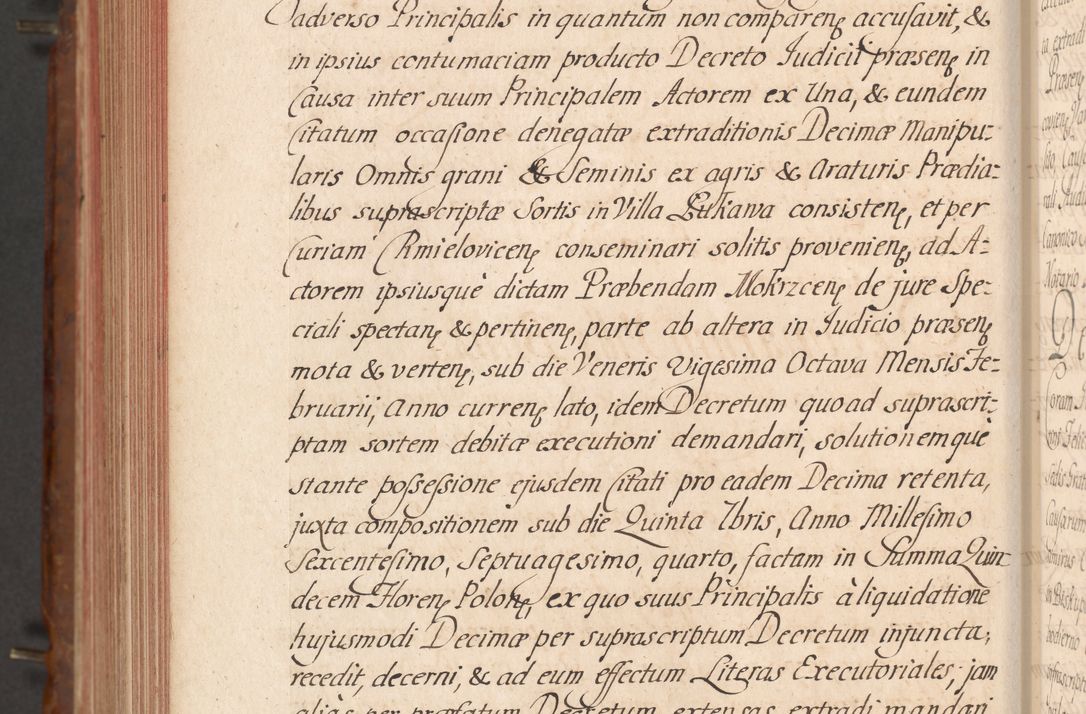 adverso Principalis in quantum non comparenę accusavit, &
in ipsius contumaciam producto Decreto Judicii præsenę in
Causa inter suum Principalem Actorem ex Una, & eundem
Citatum occasione denegatæ extraditionis Decimæ Manipu:
laris Omnis grani & Seminis ex agris & Araturis Prædia:
libus suprascriptæ Sortis in Villa Łukawa consistenę, et per
Curiam Chmielovicenę conseminari solitis provenienę, ad A:
ctorem ipsiusquè dictam Præbendam Mokrzcenę de jure Spe:
ciali spectanę & pertinenę, parte ab altera in Judicio præsenę
mota & vertenę, sub die Veneris Vigesima Octava Mensis Fe:
bruarii, Anno currenę lato, idem Decretum quoad suprascri:
ptam sortem debitæ executioni demandari, solutionemquè
stante possessione ejusdem Citati pro eadem Decima retenta,
juxta compositionem sub die Quinta 7bris, Anno Millesimo
Sexcentesimo, Septuagesimo, quarto, factam in Summa Quin
decem Florenę Polonę, ex quo suus Principalis à liquidatione
hujusmodi Decimæ per suprascriptum Decretum injuncta,
recedit, decerni, & ad eum effectum Literas Executoriales, jam
aliàs per præfatum Decretum extensas extradi mandari